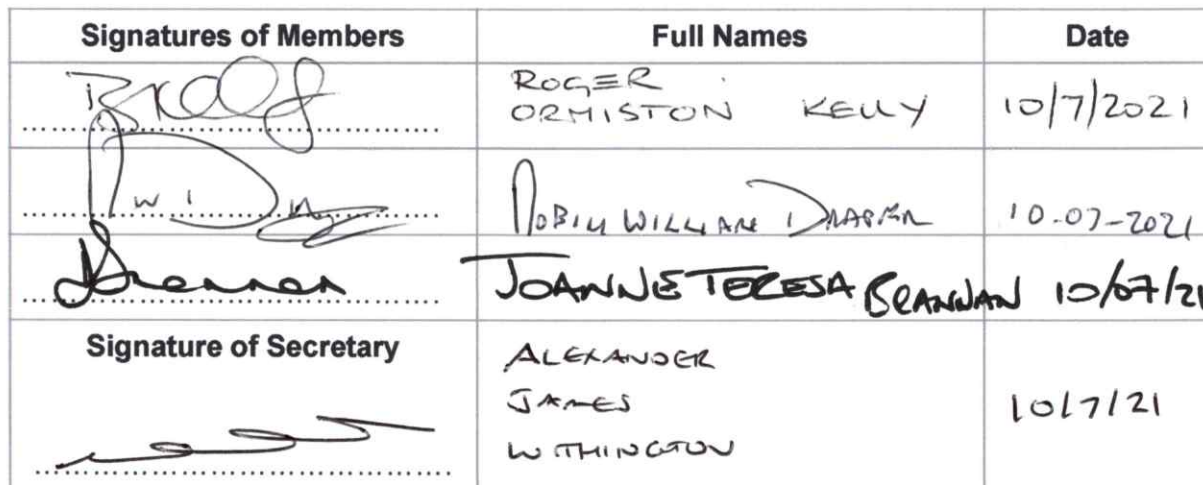 Signatures of Members Full Names Date
ROGER
ORMISTON KELLY 10/7/2021
ROBIN WILLIAM DRAPER 10-07-2021
JOANNE TERESA BRANNAN 10/07/21
Signature of Secretary
ALEXANDER
JAMES 10/7/21
WITHINGTON